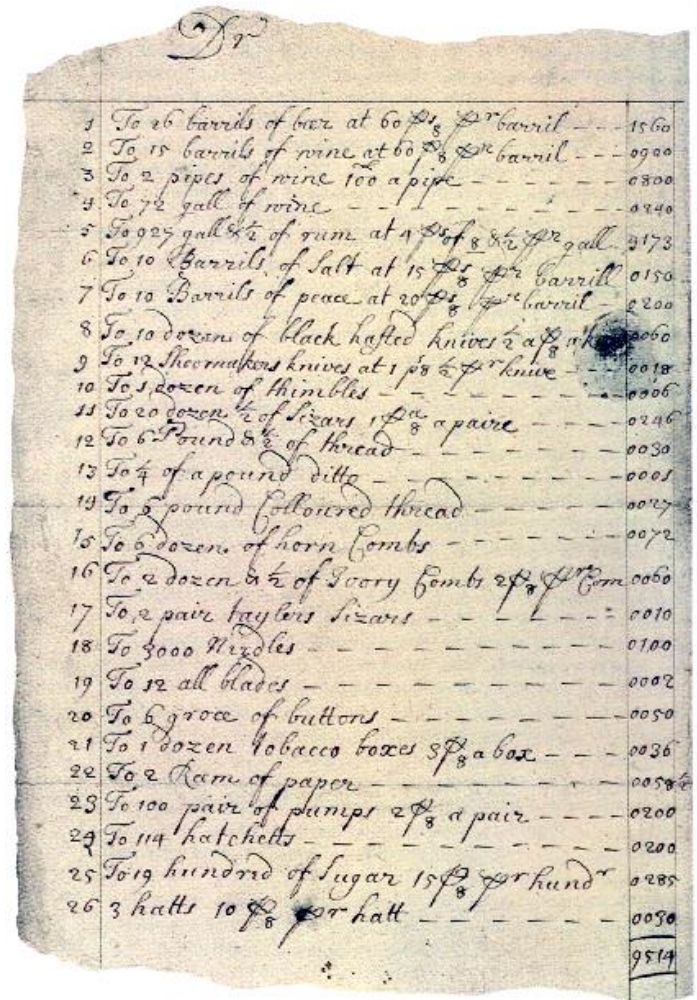 Dr
1 To 26 barrils of beer at 60 Ps/8 Pr barril --- 1560
2 To 15 barrils of wine at 60 Ps/8 Pr barril --- 0900
3 To 2 pipes of wine 400 a pipe --- 0800
4 To 72 gall of wine --- 0240
5 To 927 gall & ½ of rum at 4 Ps of 8 & ½ Pr gall 3173
6 To 10 Barrils of Salt at 15 Ps/8 Pr barrill 0150
7 To 10 Barrils of peace at 20 Ps/8 Pr barril - 0200
8 To 10 dozen of black hafted knives ½ a P/8 0060
9 To 12 Shoomakers knives at 1 p8 ½ Pr knive --- 0018
10 To 1 dozen of thimbles --- 0006
11 To 20 dozen & ½ of Sizars 1 Pa/8 a paire --- 0246
12 To 6 Pound & ½ of thread --- 0030
13 To ¼ of a pound ditto --- 0001
14 To 5 pound Colloured thread --- 0027
15 To 6 dozen of horn Combs --- 0072
16 To 2 dozen & ½ of Ivory Combs 2 P/8 Pr Com 0060
17 To 2 pair taylers Sizars --- 0010
18 To 3000 Nirdles --- 0100
19 To 12 all blades --- 0002
20 To 6 groce of buttons --- 0050
21 To 1 dozen tobacco boxes 3 P/8 a box --- 0036
22 To 2 Ram of paper --- 0058 ½
23 To 100 pair of pumps 2 P/8 a pair --- 0200
24 To 114 hatchetts --- 0200
25 To 19 hundred of Sugar 15 P/8 Pr hundr 0285
26 3 hatts 10 P/8 Pr hatt --- 0030
9514